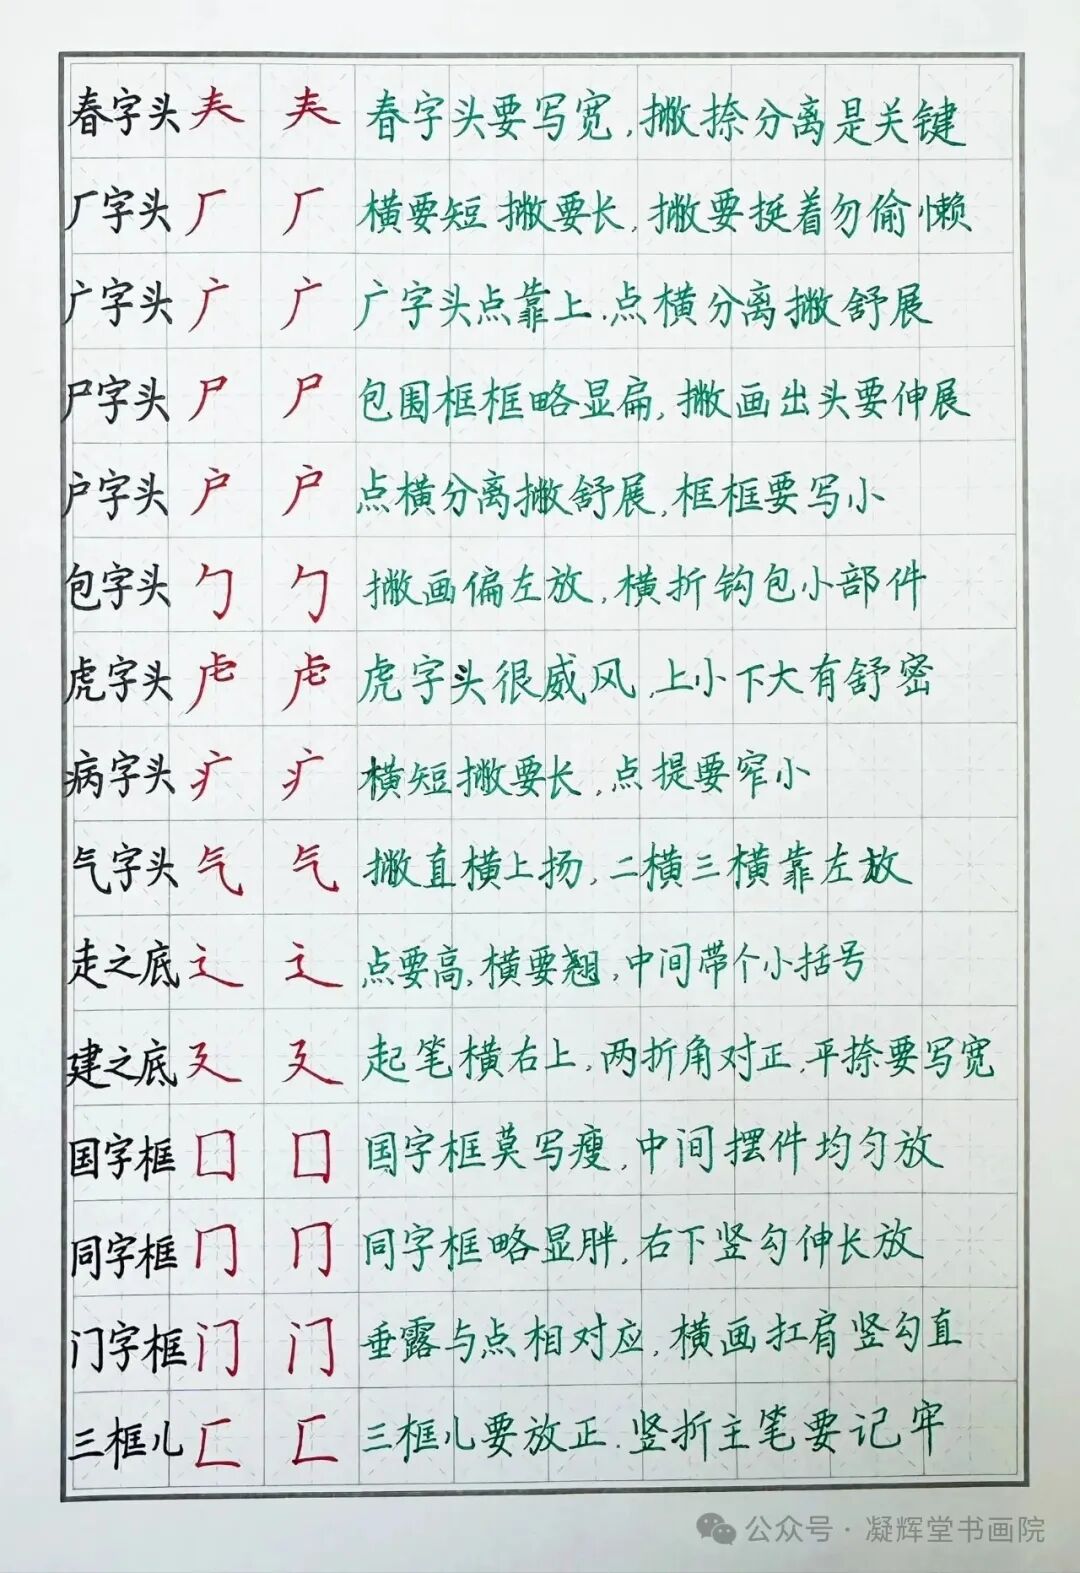 春字头 𡗗 𡗗 春字头要写宽,撇捺分离是关键
厂字头 厂 厂 横要短撇要长,撇要挺着勿偷懒
广字头 广 广 广字头点靠上.点横分离撇舒展
尸字头 尸 尸 包围框框略显扁,撇画出头要伸展
户字头 户 户 点横分离撇舒展,框框要写小
包字头 勹 勹 撇画偏左放,横折钩包小部件
虎字头 虍 虍 虎字头很威风,上小下大有舒密
病字头 疒 疒 横短撇要长,点提要窄小
气字头 气 气 撇直横上扬,二横三横靠左放
走之底 辶 辶 点要高,横要翘,中间带个小括号
建之底 廴 廴 起笔横右上,两折角对正,平捺要写宽
国字框 囗 囗 国字框莫写瘦,中间摆件均匀放
同字框 冂 冂 同字框略显胖,右下竖勾伸长放
门字框 门 门 垂露与点相对应,横画扛肩竖勾直
三框儿 匚 匚 三框儿要放正.竖折主笔要记牢
公众号·凝辉堂书画院